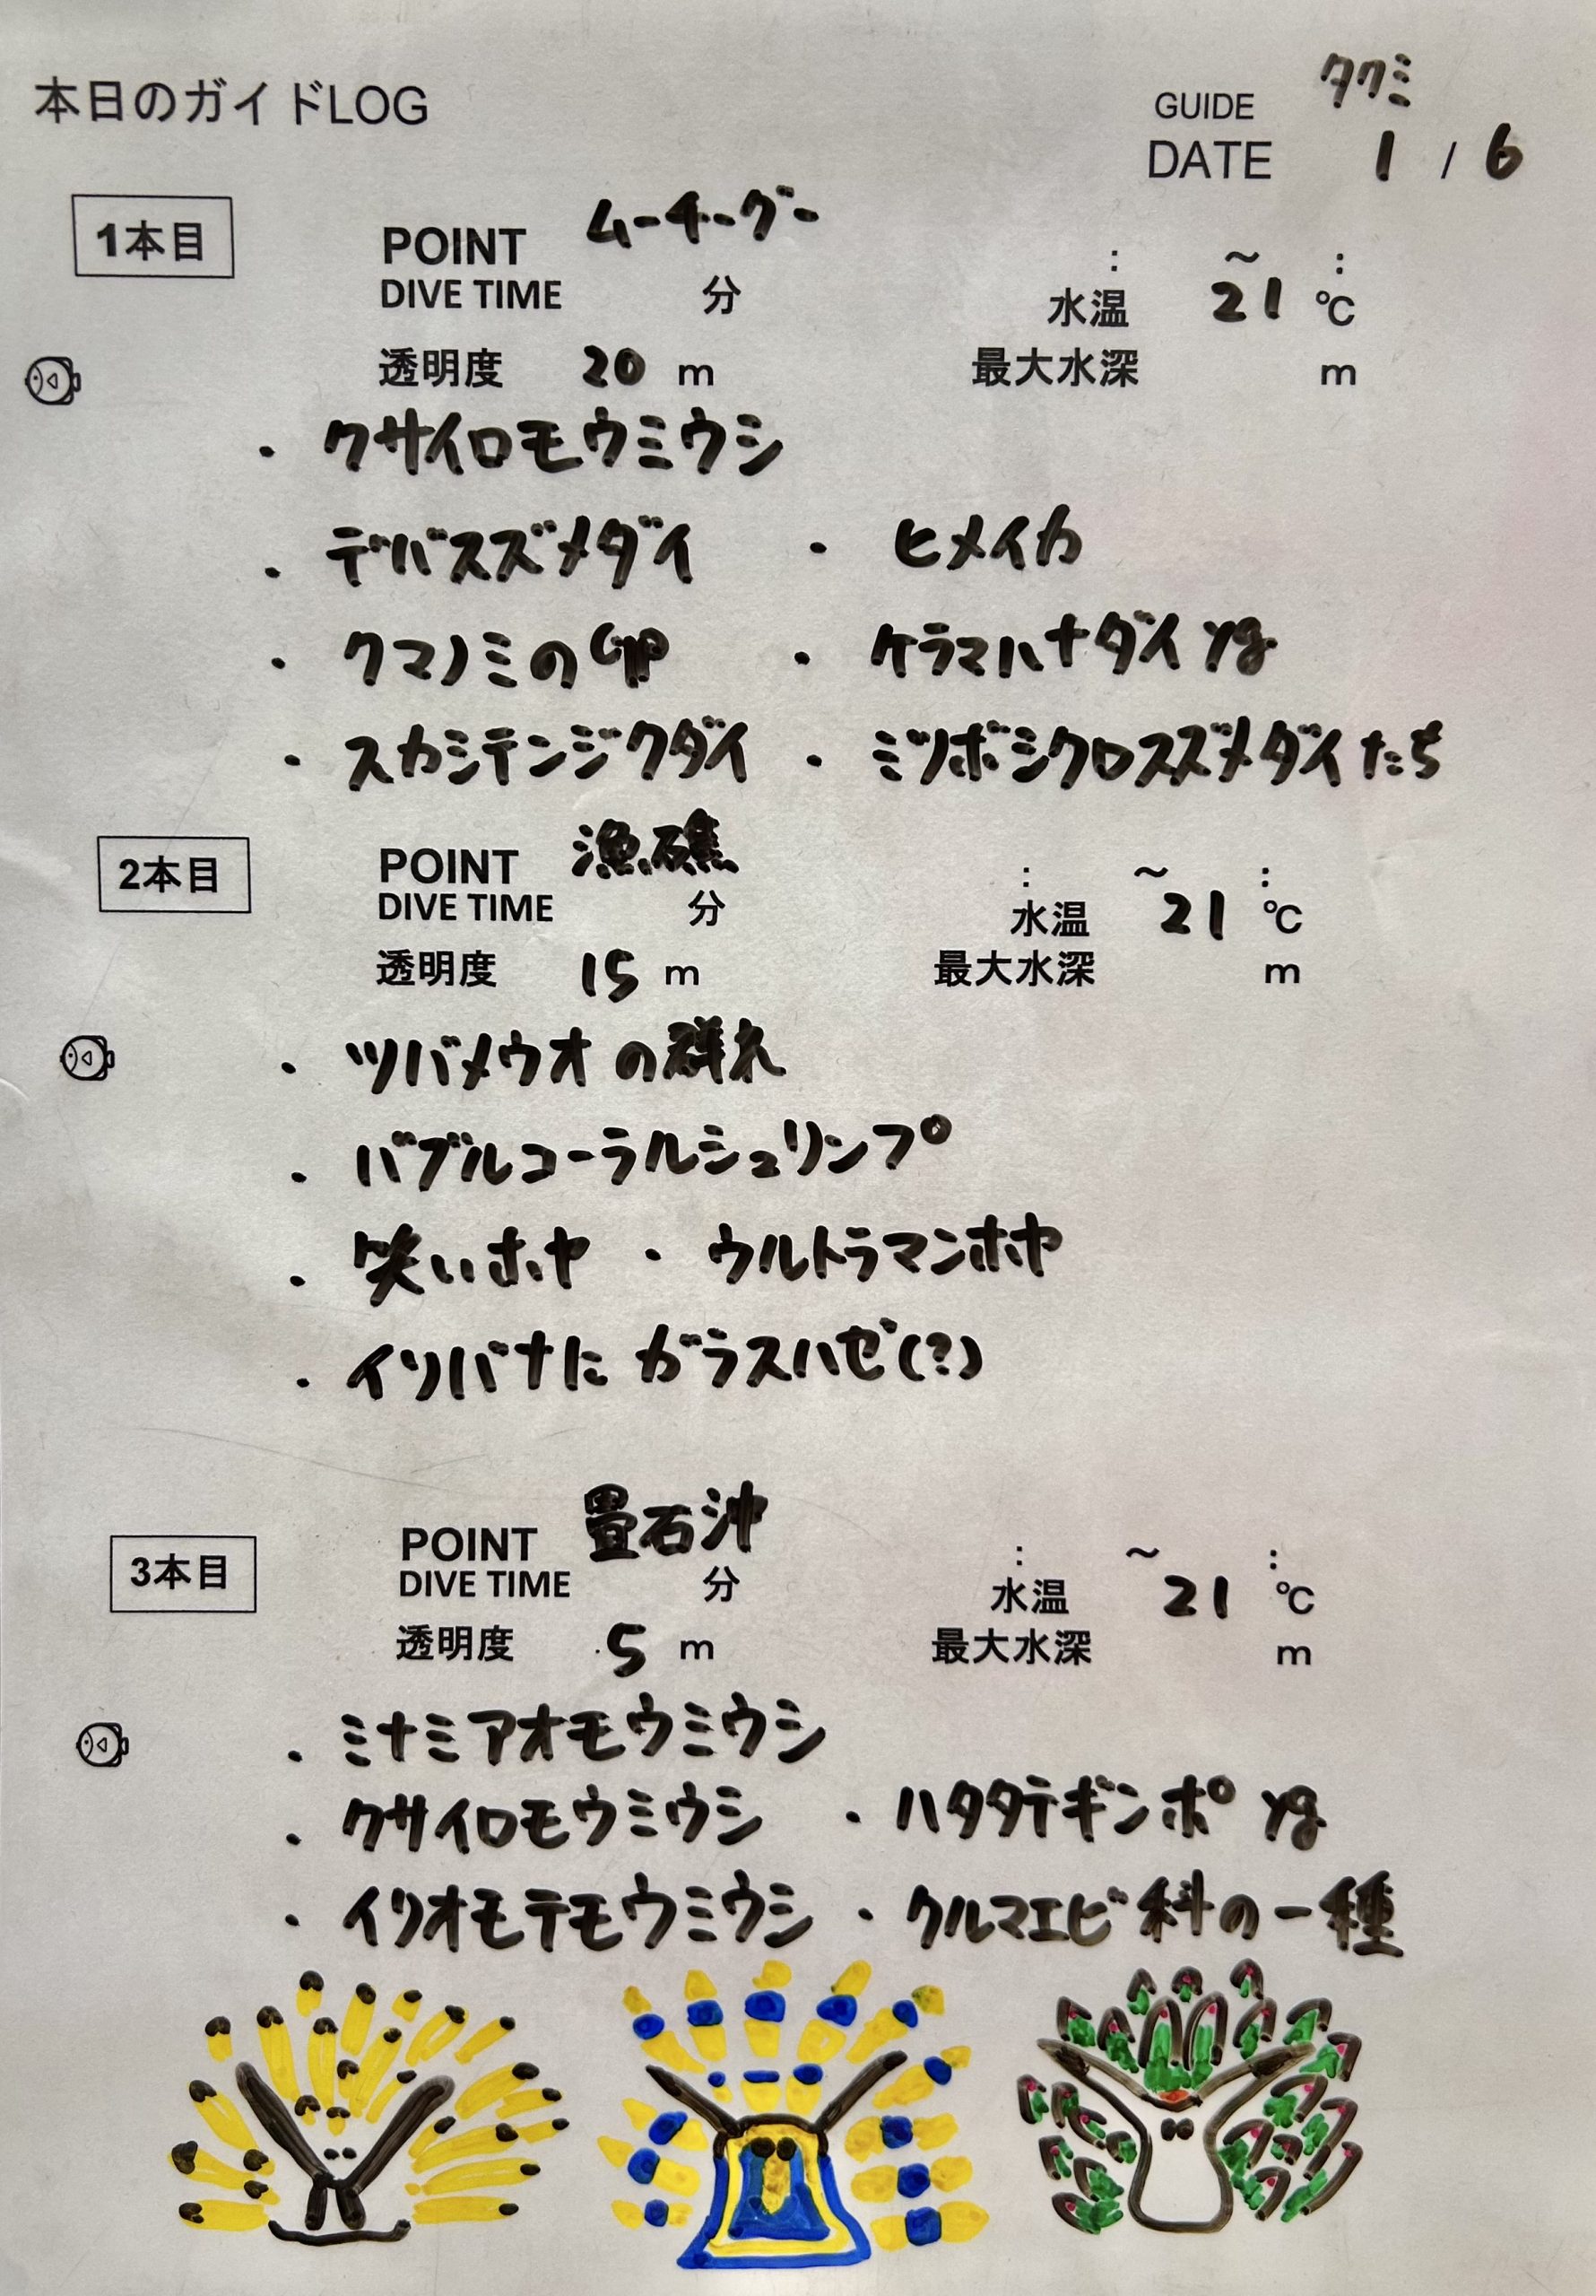 本日のガイドLOG
GUIDE タクミ
DATE 1 / 6
1本目
POINT ムーチーグー
: ～ :
DIVE TIME 分 水温 21 ℃
透明度 20 m 最大水深 m
・クサイロモウミウシ
・デバスズメダイ ・ヒメイカ
・クマノミの卵 ・ケラマハナダイ yg
・スカシテンジクダイ ・ミツボシクロスズメダイたち
2本目
POINT 漁礁
: ～ :
DIVE TIME 分 水温 21 ℃
透明度 15 m 最大水深 m
・ツバメウオの群れ
・バブルコーラルシュリンプ
・笑いホヤ ・ウルトラマンホヤ
・イソバナに ガラスハゼ(?)
3本目
POINT 畳石沖
: ～ :
DIVE TIME 分 水温 21 ℃
透明度 5 m 最大水深 m
・ミナミアオモウミウシ
・クサイロモウミウシ ・ハタタテギンポ yg
・イリオモテモウミウシ ・クルマエビ科の一種